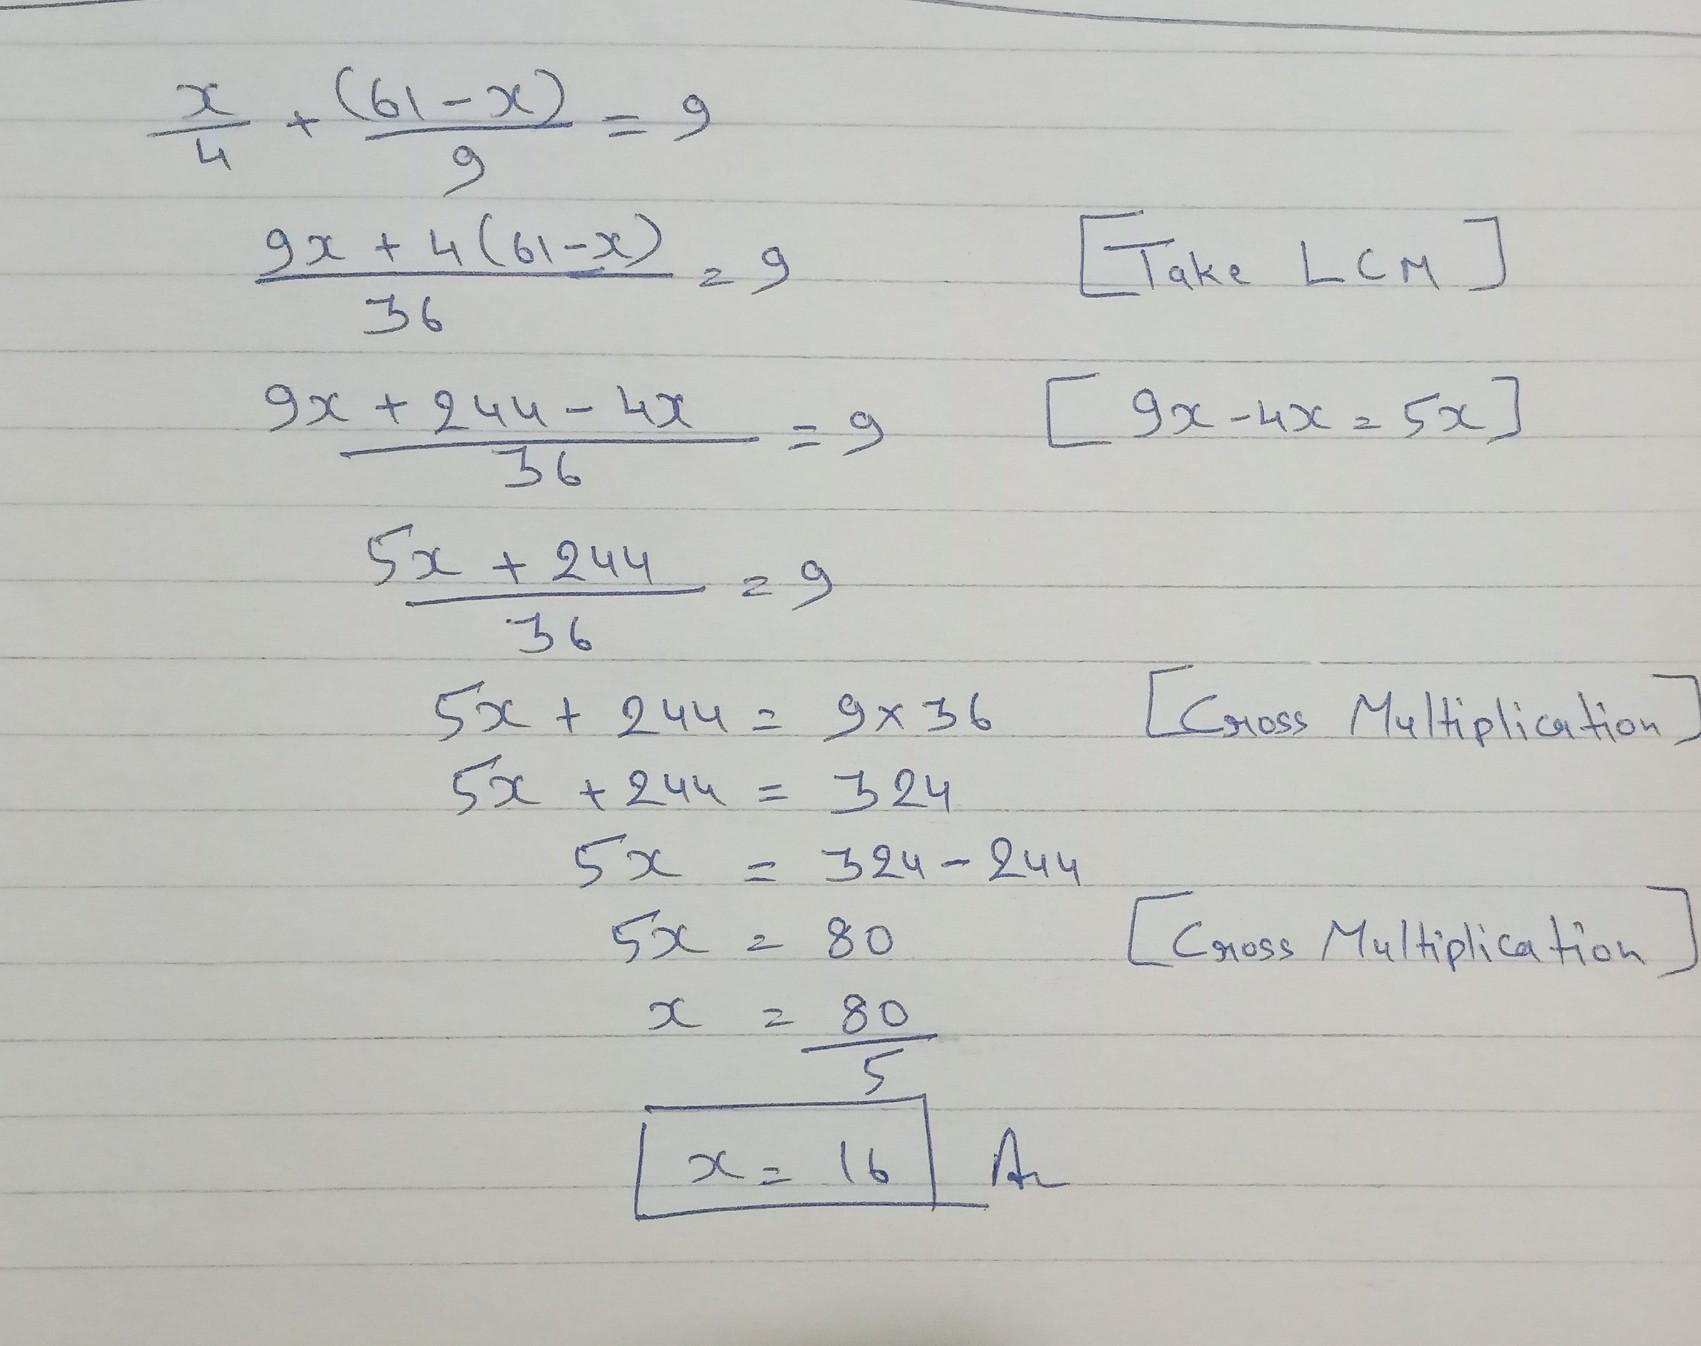 x/4 + (61-x)/9 = 9
9x + 4(61-x)/36 = 9 [Take LCM]
9x + 244 - 4x/36 = 9 [9x-4x=5x]
5x + 244/36 = 9
5x + 244 = 9×36 [Cross Multiplication]
5x + 244 = 324
5x = 324-244
5x = 80 [Cross Multiplication]
x = 80/5
x = 16